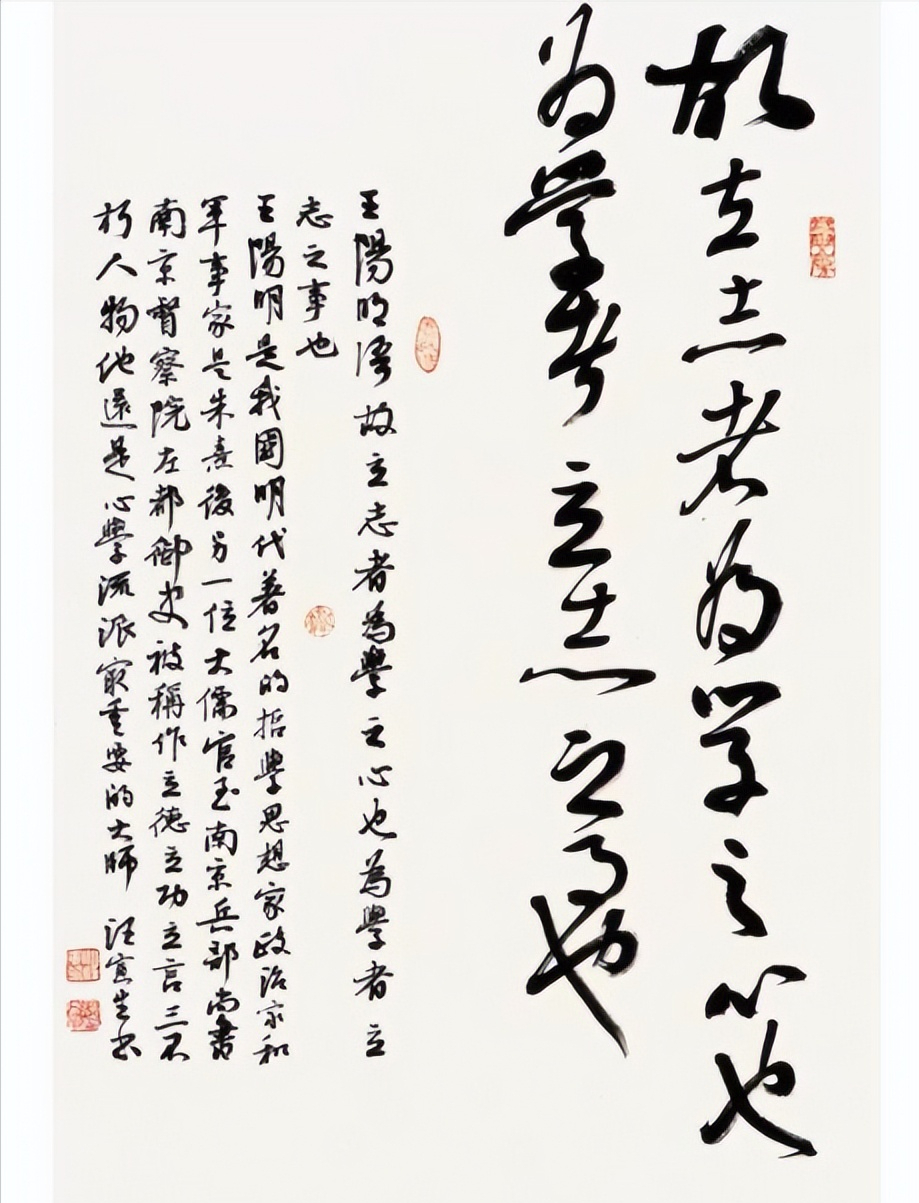 故立志者为学之心也
为学者立志之事也
王陽明语故立志者為學之心也為學者立
志之事也
王陽明是我國明代著名的哲學思想家政治家和
军事家是朱熹後另一位大儒官至南京兵部尚書
南京督察院左都御史被稱作立德立功立言三不
朽人物他還是心學流派最重要的大師 汪寅生书